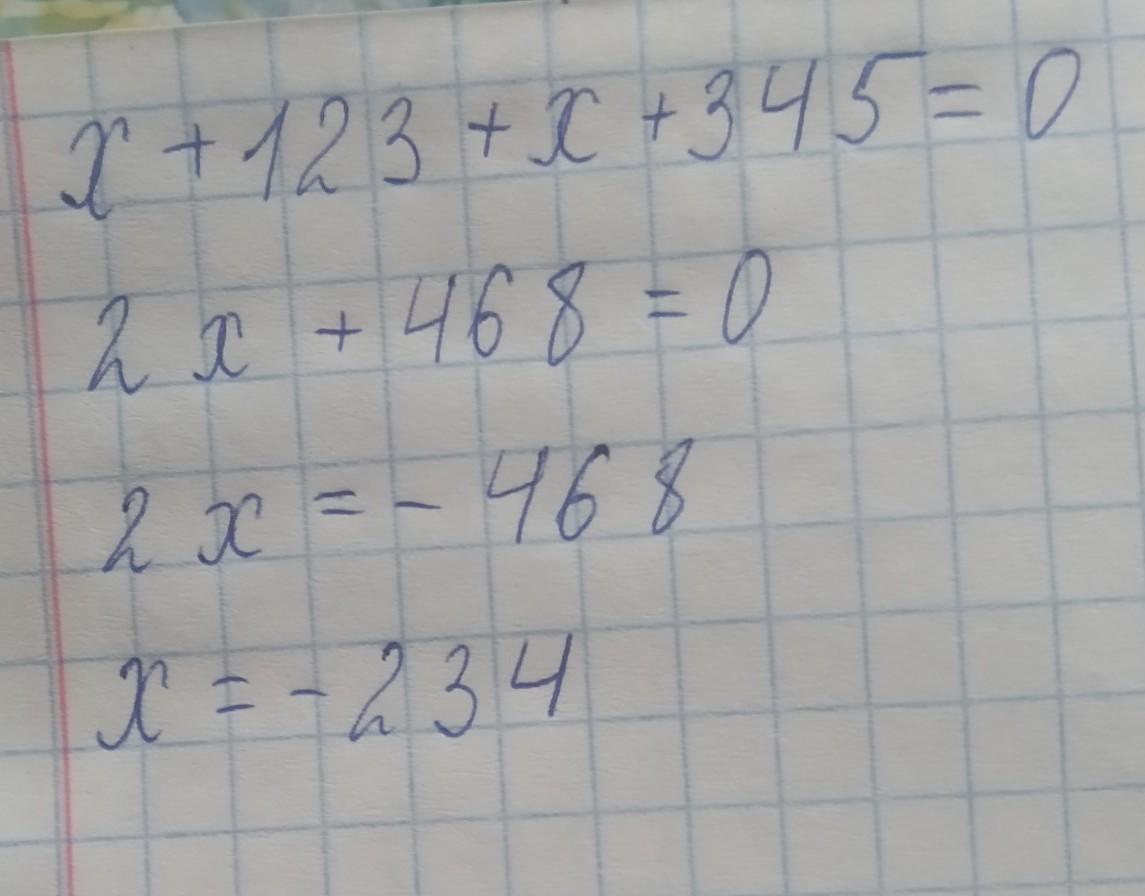 x + 123 + x + 345 = 0
2x + 468 = 0
2x = - 468
x = - 234